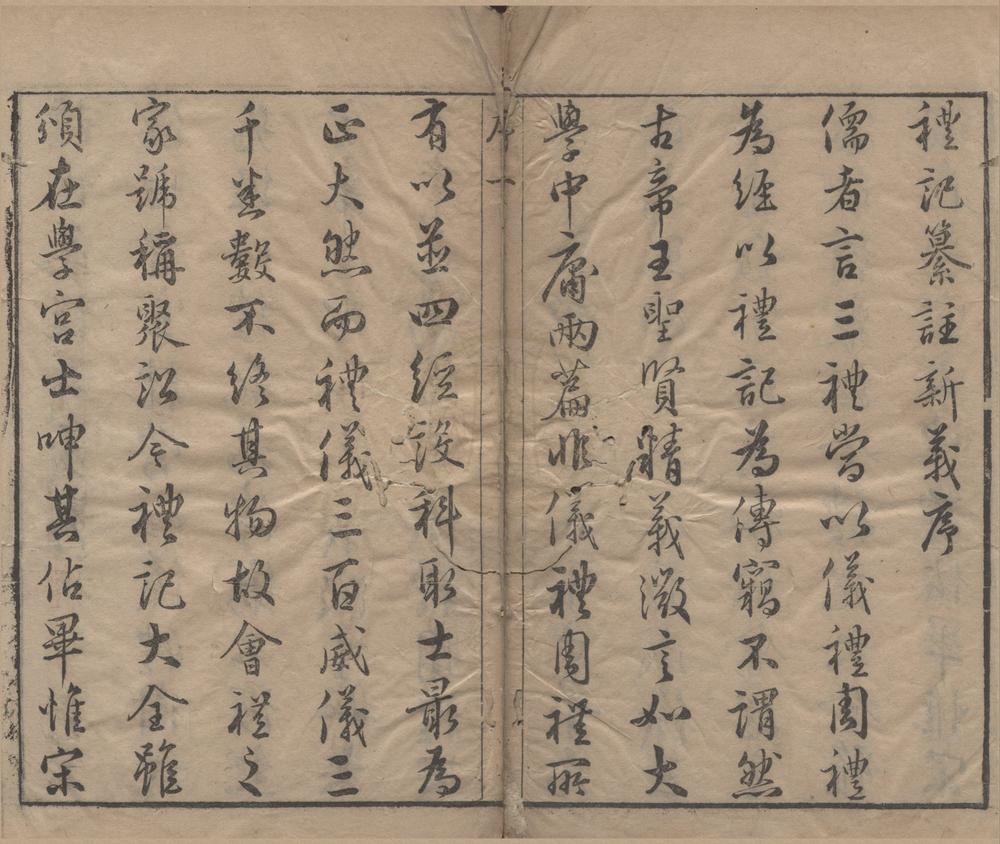 禮記纂註新義序
儒者言三禮嘗以儀禮周禮
為經以禮記為傳竊不謂然
古帝王聖賢精義微言如大
學中庸兩篇非儀禮周禮所
序 一
有以並四經設科取士最為
正大然而禮儀三百威儀三
千並數不終其物故會禮之
家號稱聚訟今禮記大全雖
頒在學宮士呻其佔畢惟宋